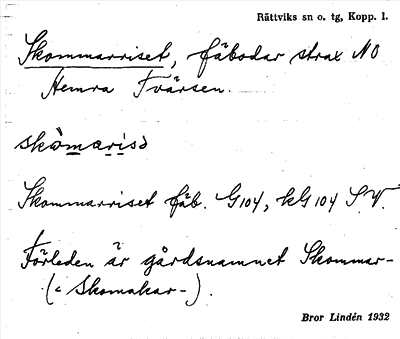 Rättviks sn o. tg, Kopp. l.
Skommarriset, fäbodar strax NO
Hemra Tvärsen.
skòmarisə
Skommarriset fäb. G104, kG104 S.V.
Förleden är gårdsnamnet Skommar-
(= Skomakar-).
Bror Lindén 1932